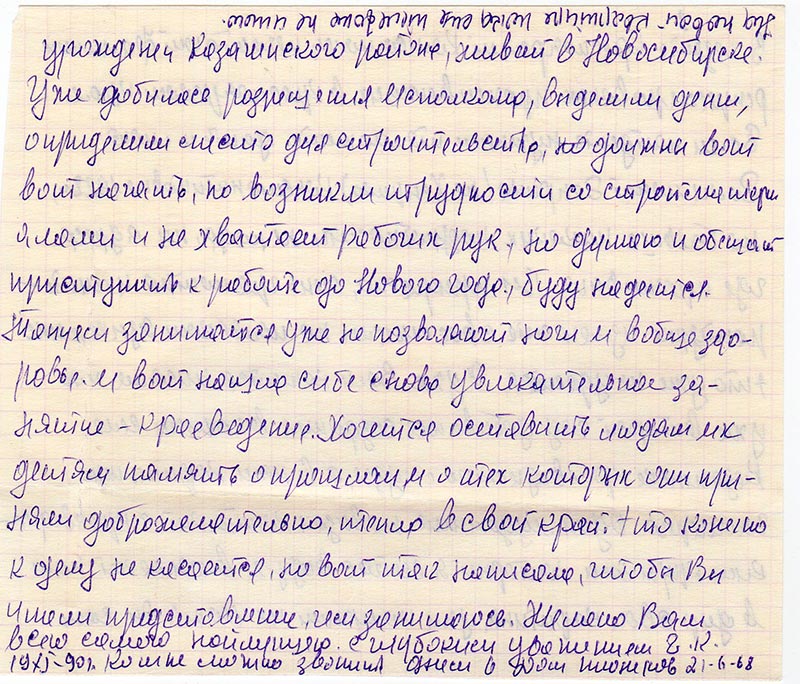 уроженец Казачинского района, живет в Новосибирске.
Уже добилась розрещения Исполкома, виделили денги,
определили место для строительства, но должни вот
вот начать, но возникли трудности со стройматери
алами и не хватает рабочих рук, но думаю и обещают
приступить к работе до Нового года, буду надеятся.
Танцем заниматся уже не позволяют ноги и вобще здо-
ровье. И вот нашла сибе снова увлекательное за-
нятие - краеведение. Хочется оставить людям их
детям память о прошлом, и о тех которых они при-
няли доброжелательно, тепло в свой край. Это конешно
к делу не касается, но вот так написала, чтоби Ви
имели представление, чем занимаюсь. Желаю Вам
всего самого наилучшего. С глубоким уважением Е. К.
19 XI-90г. Ко мне можно звонить днем в Дом пионеров 21-6-68